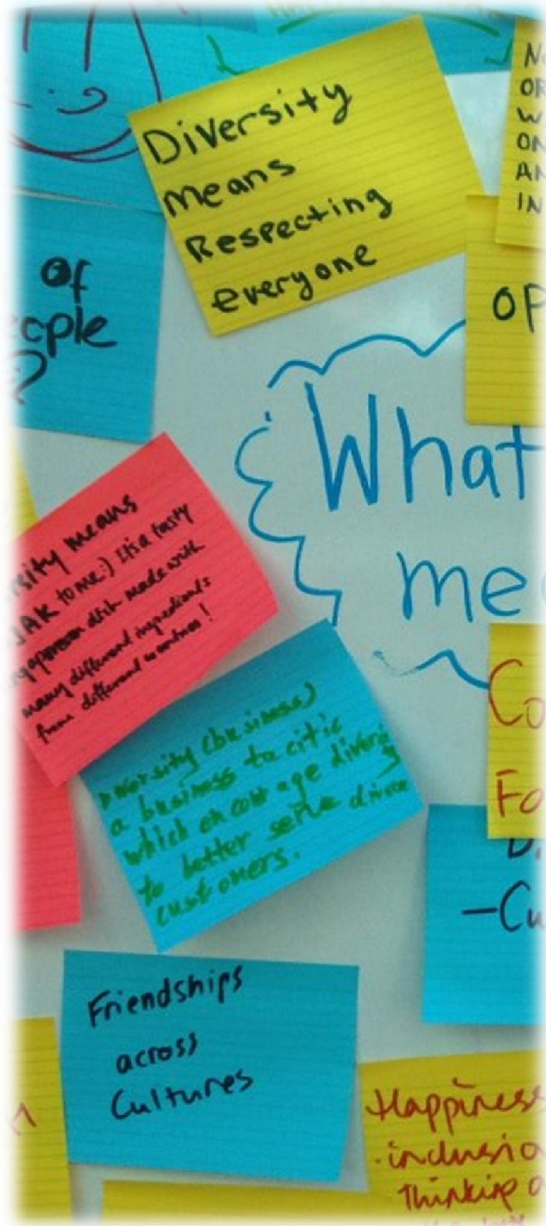 Diversity
means
Respecting
everyone
No
OR
W
ON
AN
IN
of
eople
OP
What
me
rsity means
JAK to me:) Its a tasty
ngaporean dish made with
many different ingredients
from different countries!
Diversity (business)
a business tactic
which encourage diversi
to better serve diverse
customers.
Co
Fo
D.
-Cu
Friendships
across
Cultures
Happiness
-inclusio
Thinking